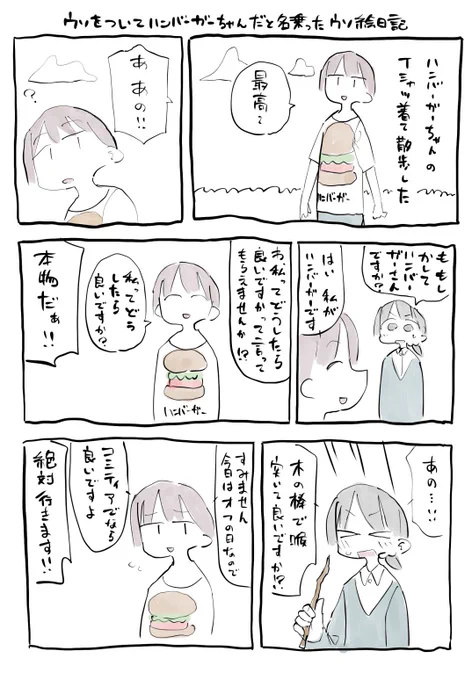 ウソをついてハンバーガーちゃんだと名乗ったウソ絵日記
ハンバーガーちゃんの
Tシャツ着て散歩した
最高〜
ハンバーガー
あ
あの!!
?
も もし
かして
ハンバー
ガーさん
ですか?
はい 私が
ハンバーガーです
あ、私ってどうしたら
良いですかって言って
もらえませんか!?
私ってどう
したら
良いですか?
ハンバーガー
本物だぁ!!
あの…!!
木の棒で
突いて良いですか!?
すみません
今日はオフの日なので
コミティアでなら
良いですよ
絶対行きます!!